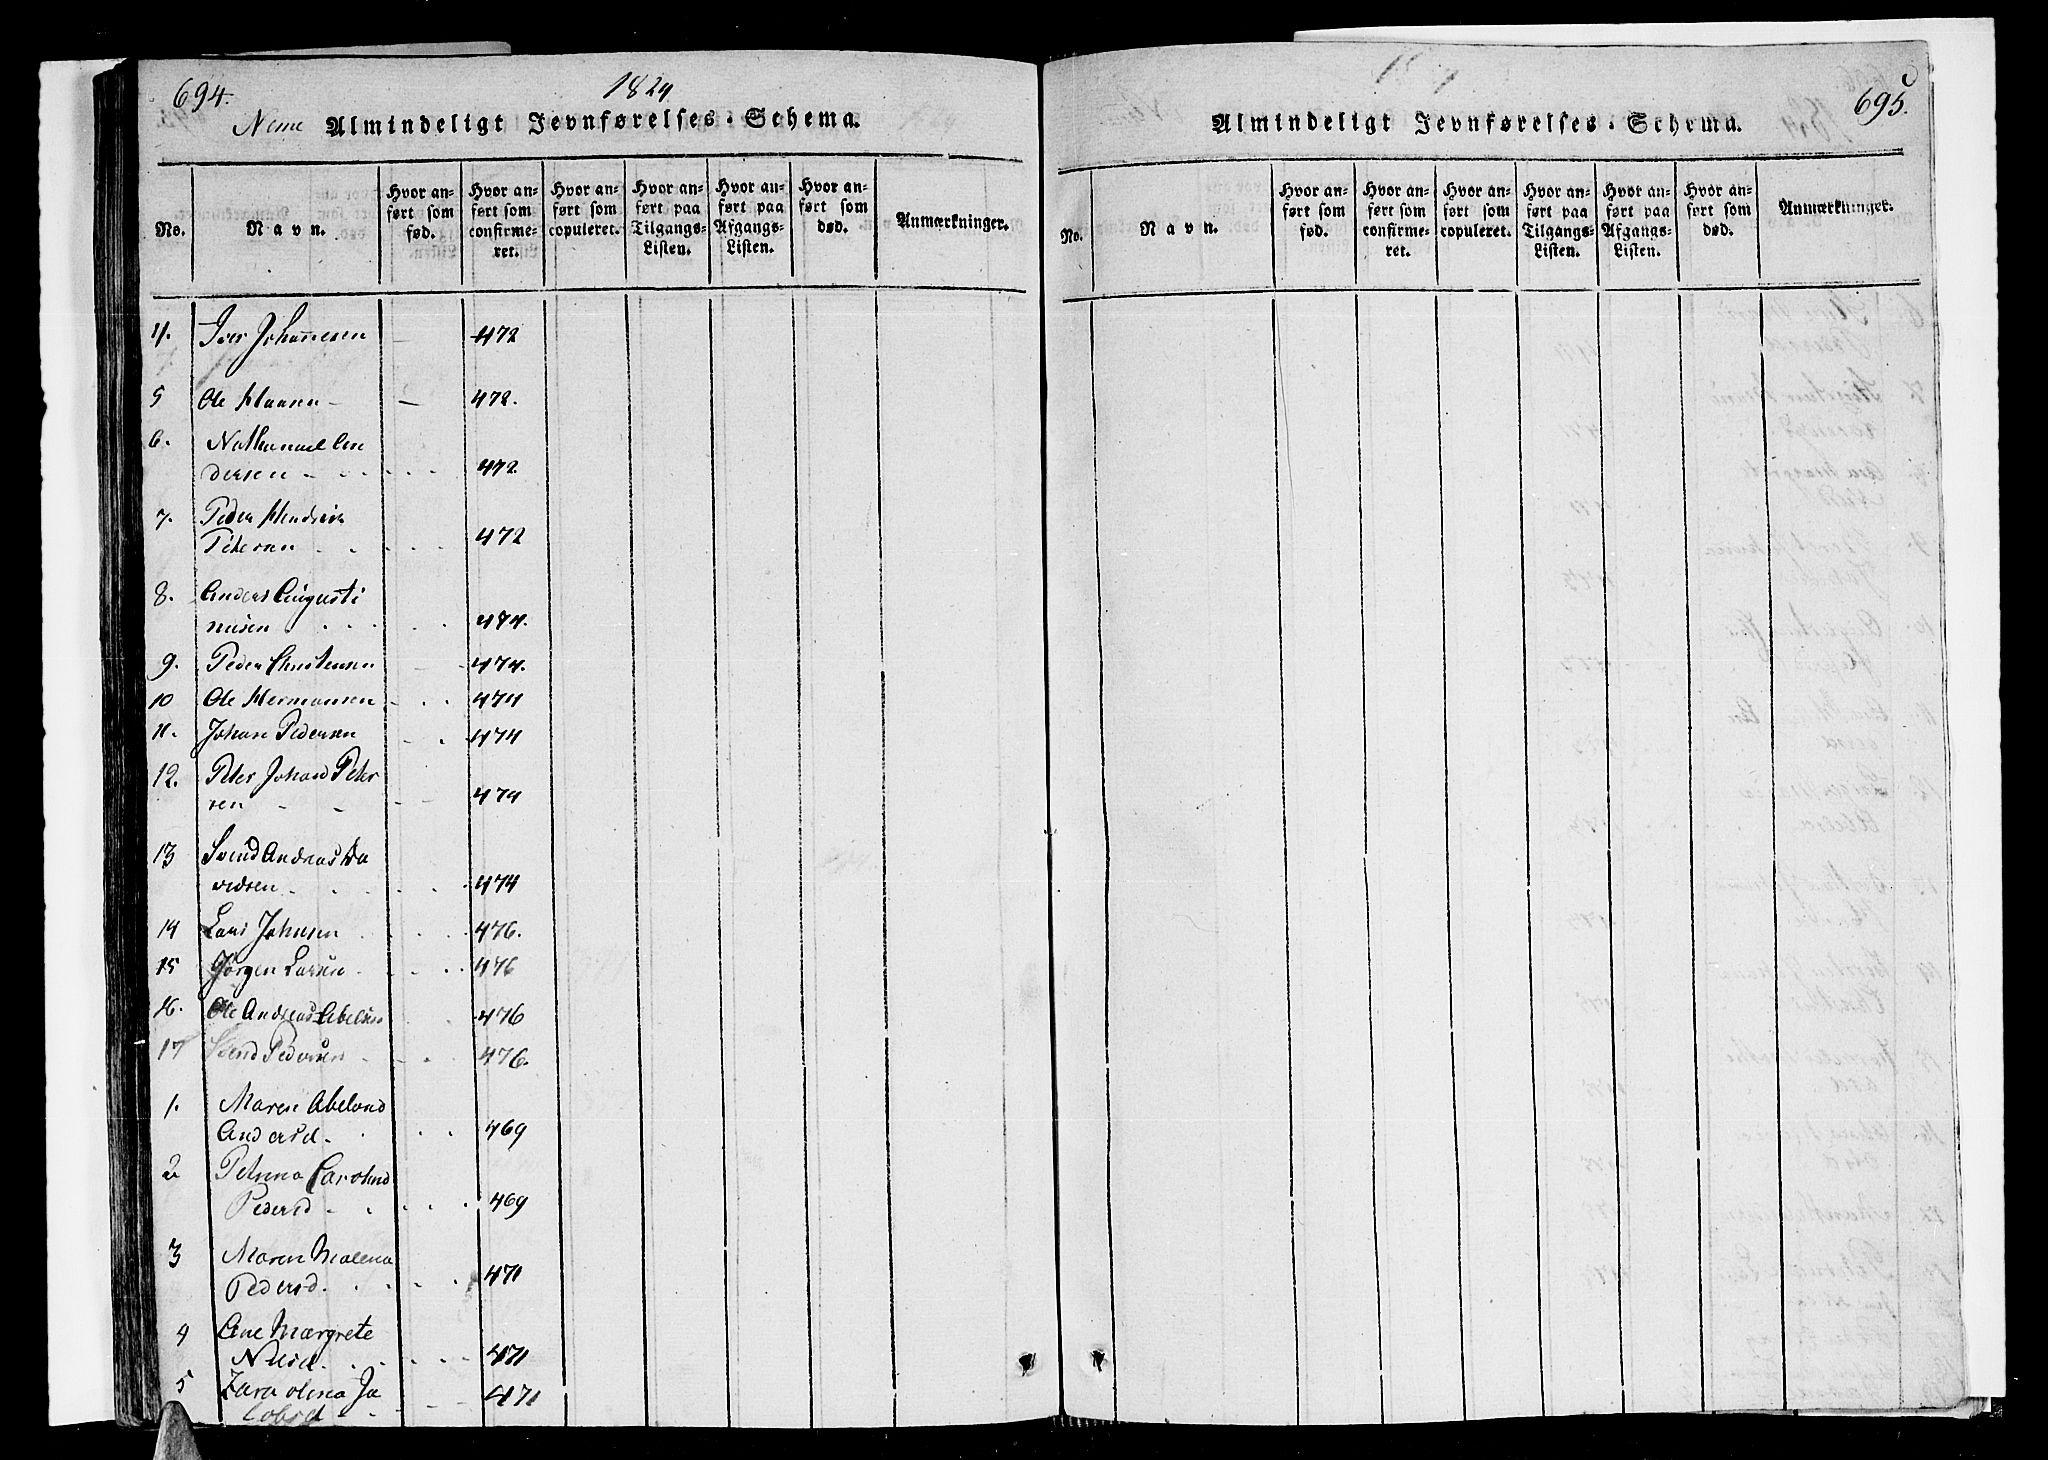 694.
1824
Almindeligt Jevnførelses-Schema.
No.
Navn.
Hvor an-
ført som
fød.
Hvor an-
ført som
confirme-
ret.
Hvor an-
ført som
copuleret.
Hvor an-
ført paa
Tilgangs-
Listen.
Hvor an-
ført paa
Afgangs-
Listen.
Hvor an-
ført som
død.
Anmærkninger.
4. Iver Johannesen 472
5 Ole 472.
6. Nathanael An
dersen 472
7. Peder Hendrik
Petersen 472
8. Anders Augusti
nusen 474.
9. Peder Christensen 474.
10 Ole Hermansen 474
11. Johan Pedersen 474
12. Peter Johan Peter
sen 474
13 Svend Andreas Da
vidsen 474
14 Lars Johnsen 476.
15 Jørgen Larsen 476
16. Ole Andreas Abelsen 476
17 Svend Pedersen 476.
1. Maren Abelona
Andersd. 469
2 Petrina Carolina
Pedersd 469
3 Maren Malena
Pedersd. 471
4 Ane Margrete
Nielsd. 471
5 Zara Olena Ja
cobsd 471
695.
Almindeligt Jevnførelses-Schema.
No.
Navn.
Hvor an-
ført som
fød.
Hvor an-
ført som
confirme-
ret.
Hvor an-
ført som
copuleret.
Hvor an-
ført paa
Tilgangs-
Listen.
Hvor an-
ført paa
Afgangs-
Listen.
Hvor an-
ført som
død.
Anmærkninger.